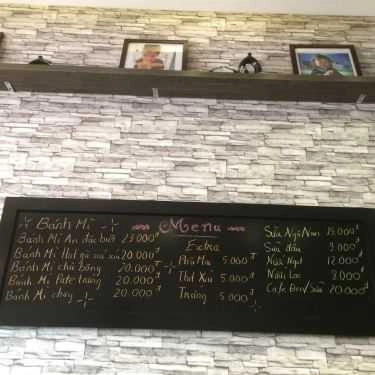 Menu
Bánh Mì
Bánh Mì An đặc biệt 25.000đ
Bánh Mì Thịt gà xá xíu 20.000đ
Bánh Mì chà bông 20.000đ
Bánh Mì Pate trứng 20.000đ
Bánh Mì chay 20.000đ
Extra
Phô Mai 5.000đ
Thịt Xíu 5.000đ
Trứng 5.000đ
Sữa Ngô Non 15.000đ
Sữa đậu 9.000đ
Nước Ngọt 12.000đ
Nước Lọc 8.000đ
Cafe Đen/Sữa 20.000đ